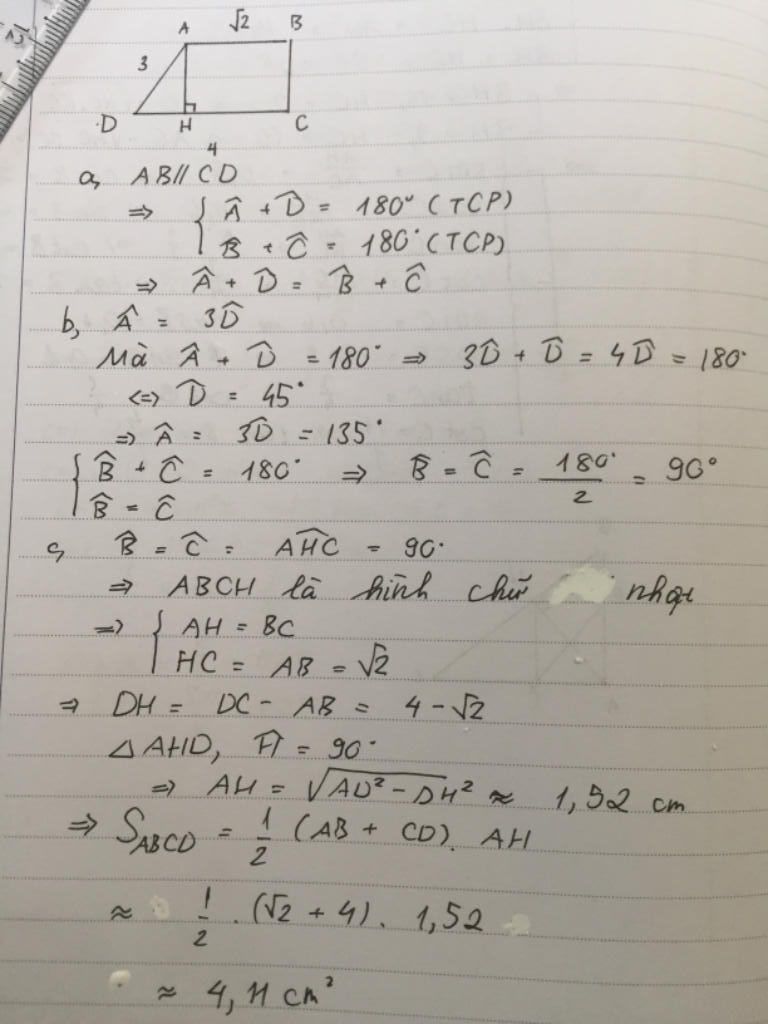 A √2 B
3
D H C
4
a, AB // CD
⇒ { Â + D̂ = 180° (TCP)
B̂ + Ĉ = 180° (TCP)
⇒ Â + D̂ = B̂ + Ĉ
b, Â = 3D̂
Mà Â + D̂ = 180° ⇒ 3D̂ + D̂ = 4D̂ = 180°
<=> D̂ = 45°
⇒ Â = 3D̂ = 135°
{ B̂ + Ĉ = 180° ⇒ B̂ = Ĉ = 180°/2 = 90°
B̂ = Ĉ
c, B̂ = Ĉ = AHĈ = 90°
⇒ ABCH là hình chữ nhật
⇒ { AH = BC
HC = AB = √2
⇒ DH = DC - AB = 4 - √2
△ AHD, Ĥ = 90°
⇒ AH = √(AD² - DH²) ≈ 1,52 cm
⇒ S_ABCD = 1/2 (AB + CD). AH
≈ 1/2 . (√2 + 4). 1,52
≈ 4,11 cm²